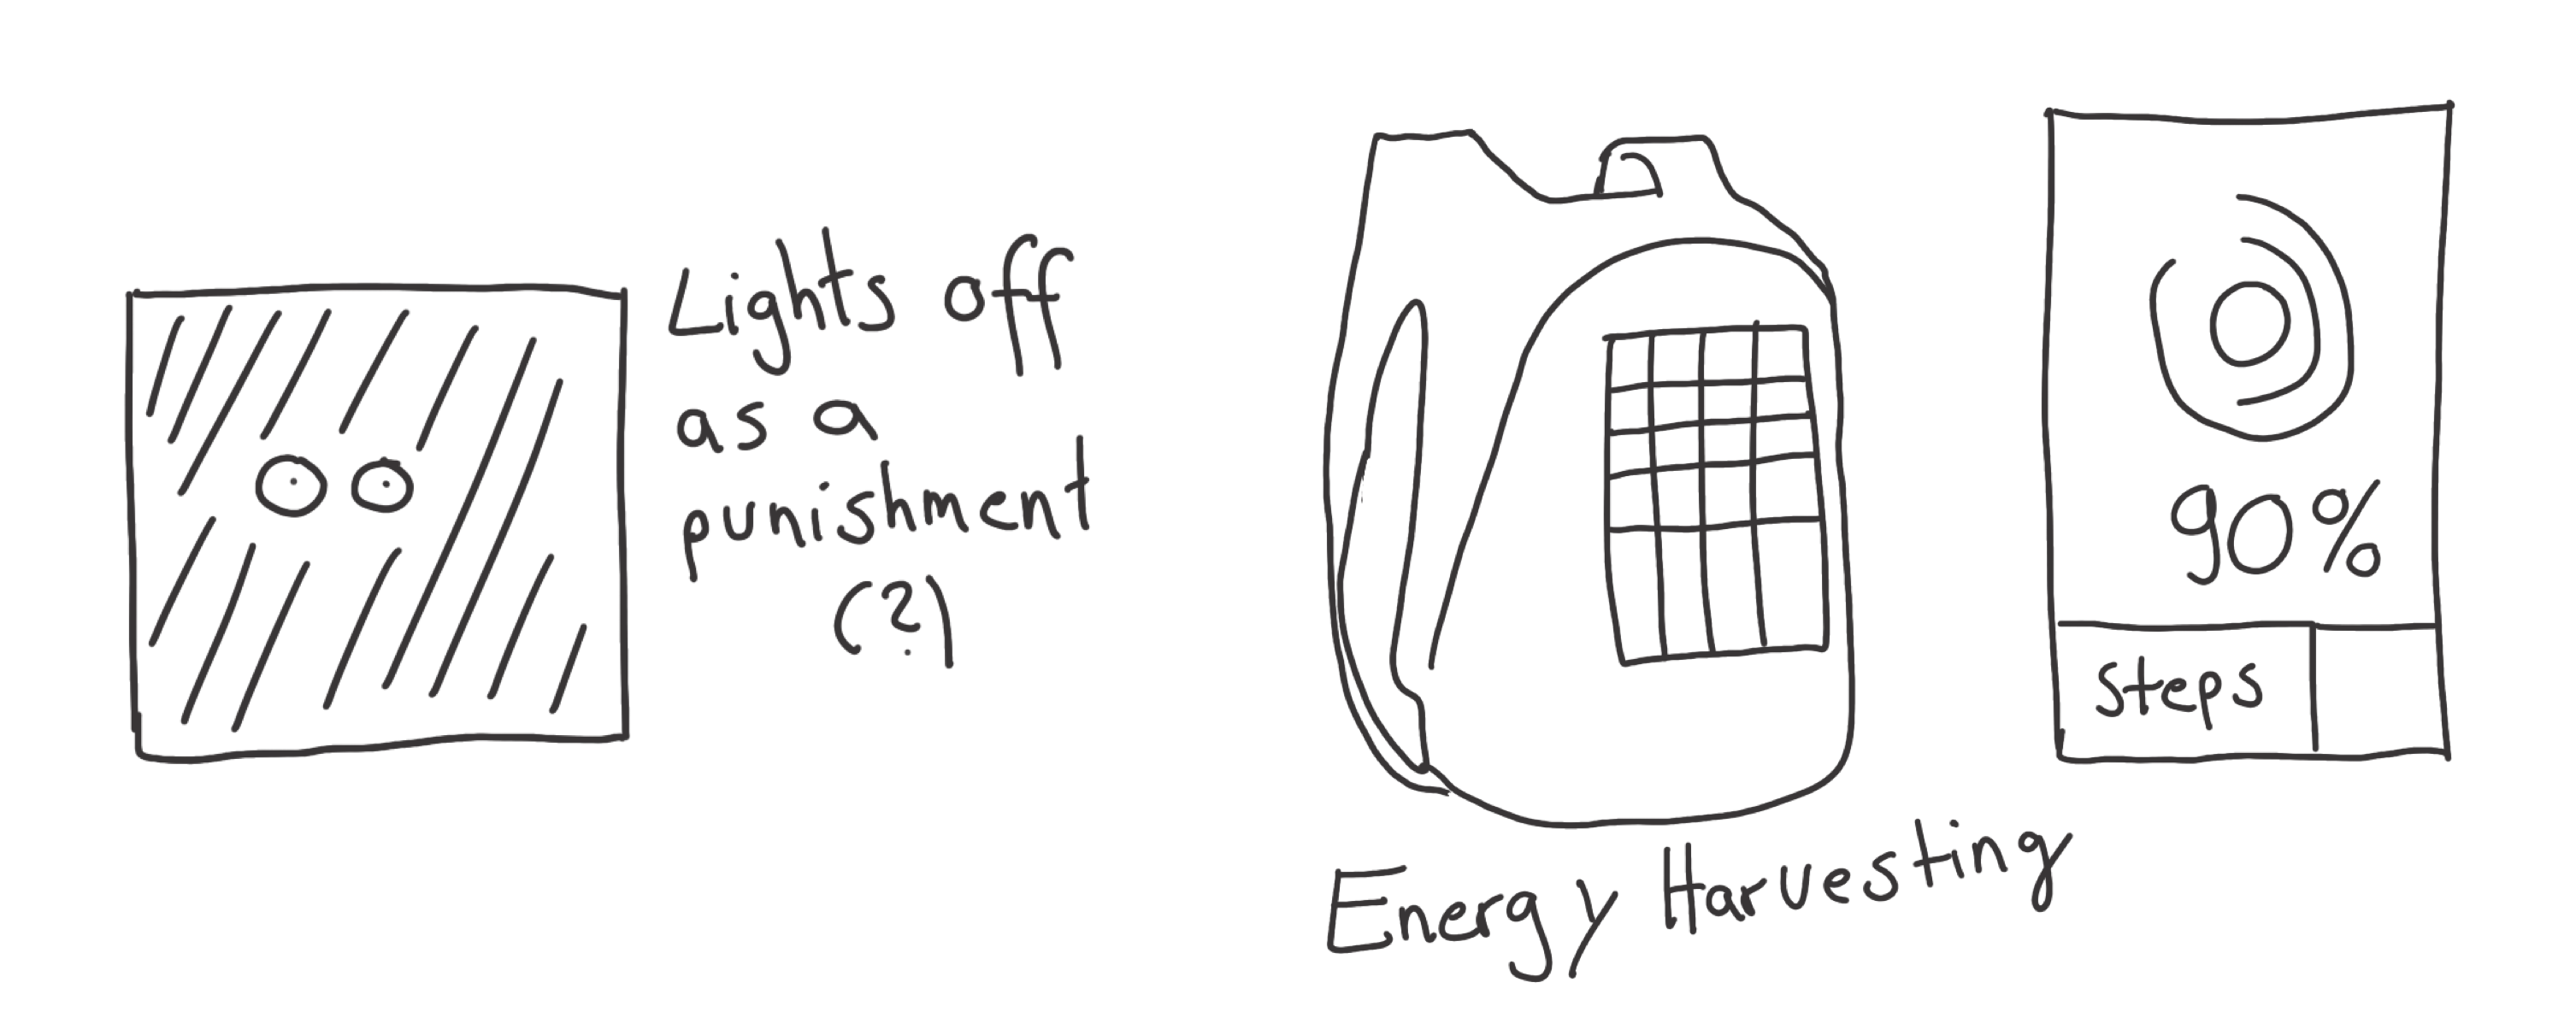 Lights off
as a
punishment
(?)
Energy Harvesting
90%
Steps